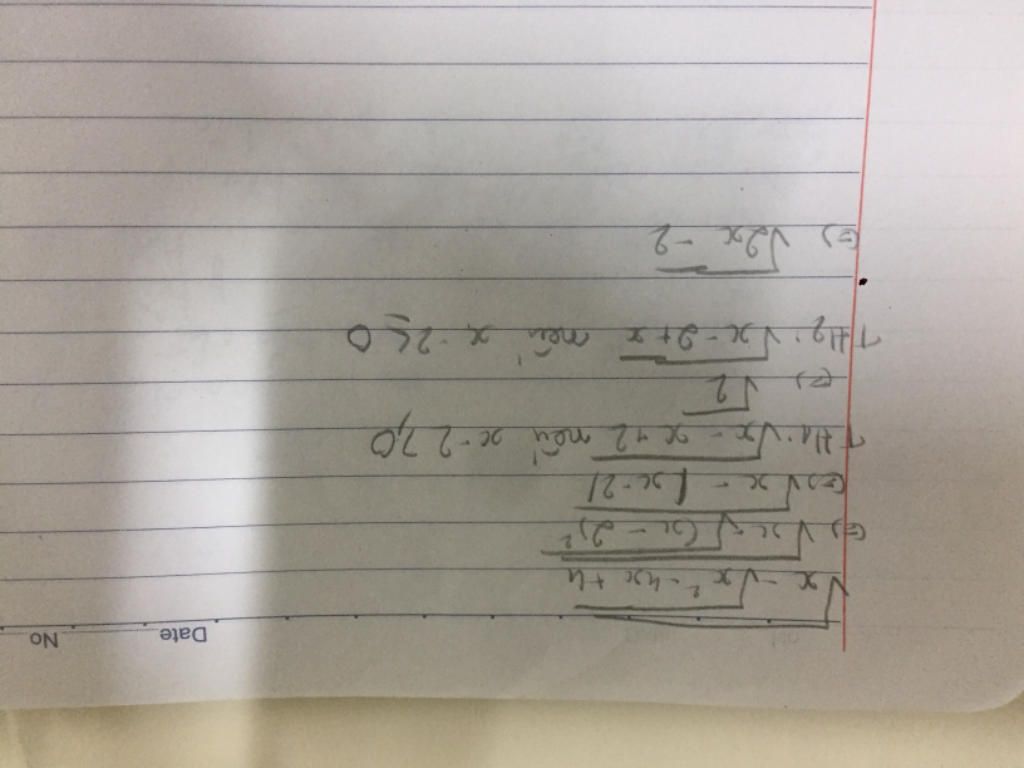 No Date
√(x - √(x² - 4x + 4))
(=) √(x - √((x - 2)²))
(=) √(x - |x - 2|)
TH1: √(x - x + 2) nếu x - 2 ≥ 0
(=) √2
TH2: √(x - 2 + x) nếu x - 2 ≤ 0
(=) √(2x - 2)